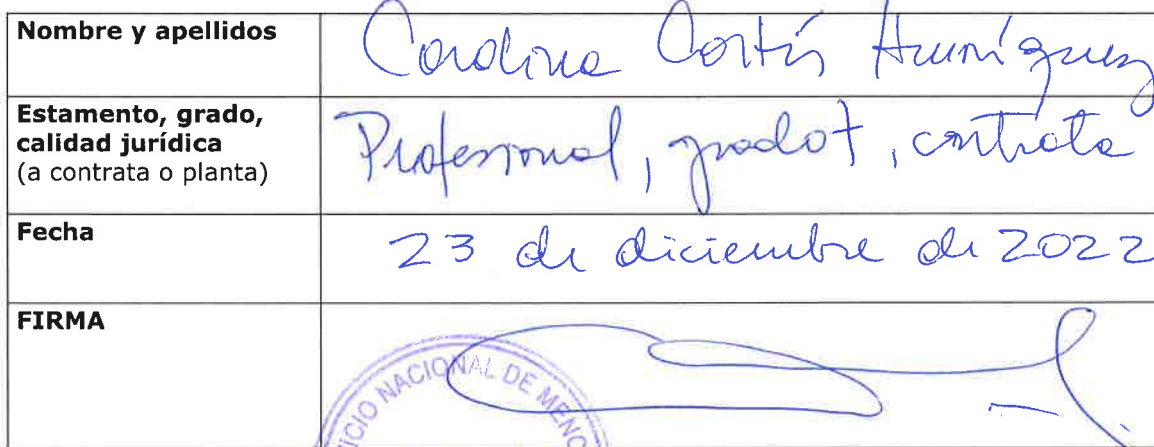 Nombre y apellidos
Carolina Cortés Henríquez
Estamento, grado,
calidad jurídica
(a contrata o planta)
Profesional, grado 7, contrata
Fecha
23 de diciembre de 2022
FIRMA
ICIO NACIONAL DE MENO